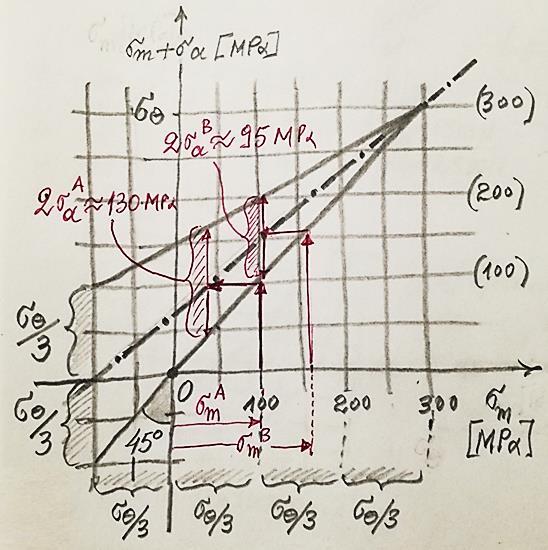 σm+σa [MPa]
σθ
(300)
2σaB≈95 MPa
2σaA≈130 MPa
(200)
(100)
σθ/3
σθ/3
0
σmA
100
200
300
σm
[MPa]
σmB
45°
σθ/3
σθ/3
σθ/3
σθ/3